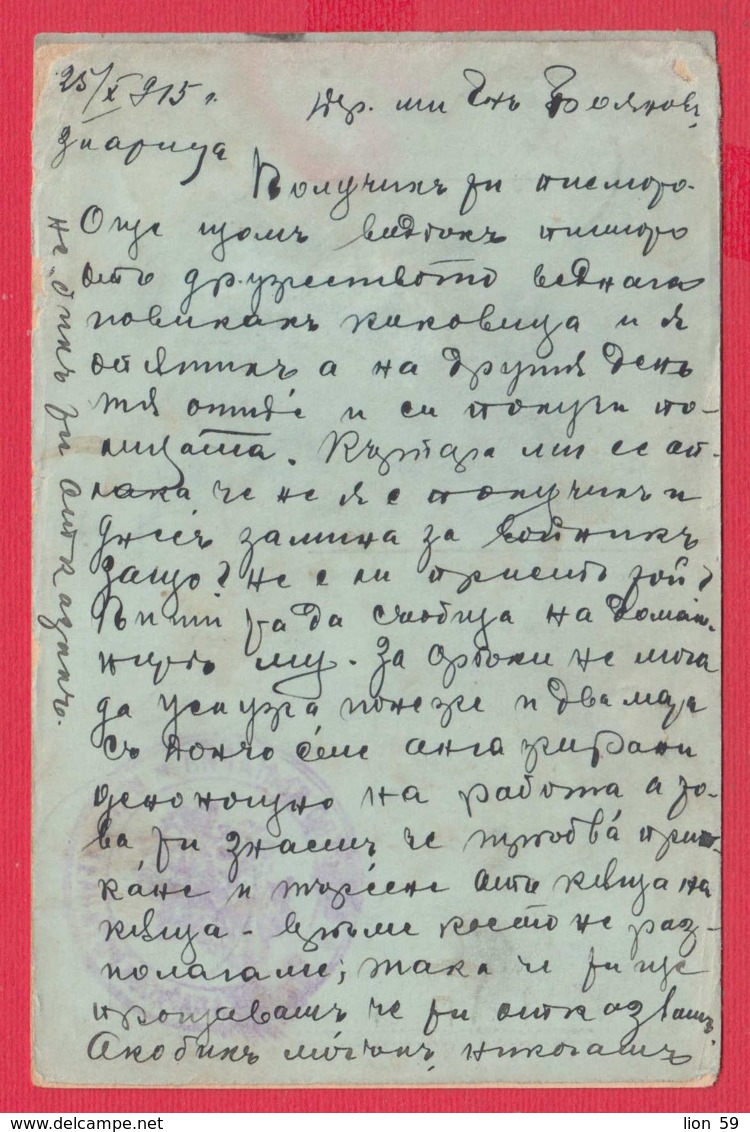 25/X 915 г.
Др. ми Гнъ Бояновъ,
Получихъ ти писмото.
Още щомъ видѣхъ писмото
отъ дружеството веднага
повикахъ и я
а на другия день
тя отиде и си получи по-
лицата. ми се оп-
лака че не я е получилъ и
днесъ замина за войникъ
Защо? не е ли приетъ той?
Пиши та да съобщя на домаш-
нитѣ му. За не мога
да услужа понеже и двамата
съ Дончо сме ангажирани
денонощно на работа а то-
ва ти знаешъ че трѣбва
кане и търсене отъ кѫща на
кѫща - врѣме което не раз-
полагаме; така че ти ще
прощавашъ че ти отказвамъ.
Ако бихъ могълъ, никогашъ
не бихъ ти отказалъ.
lion 59